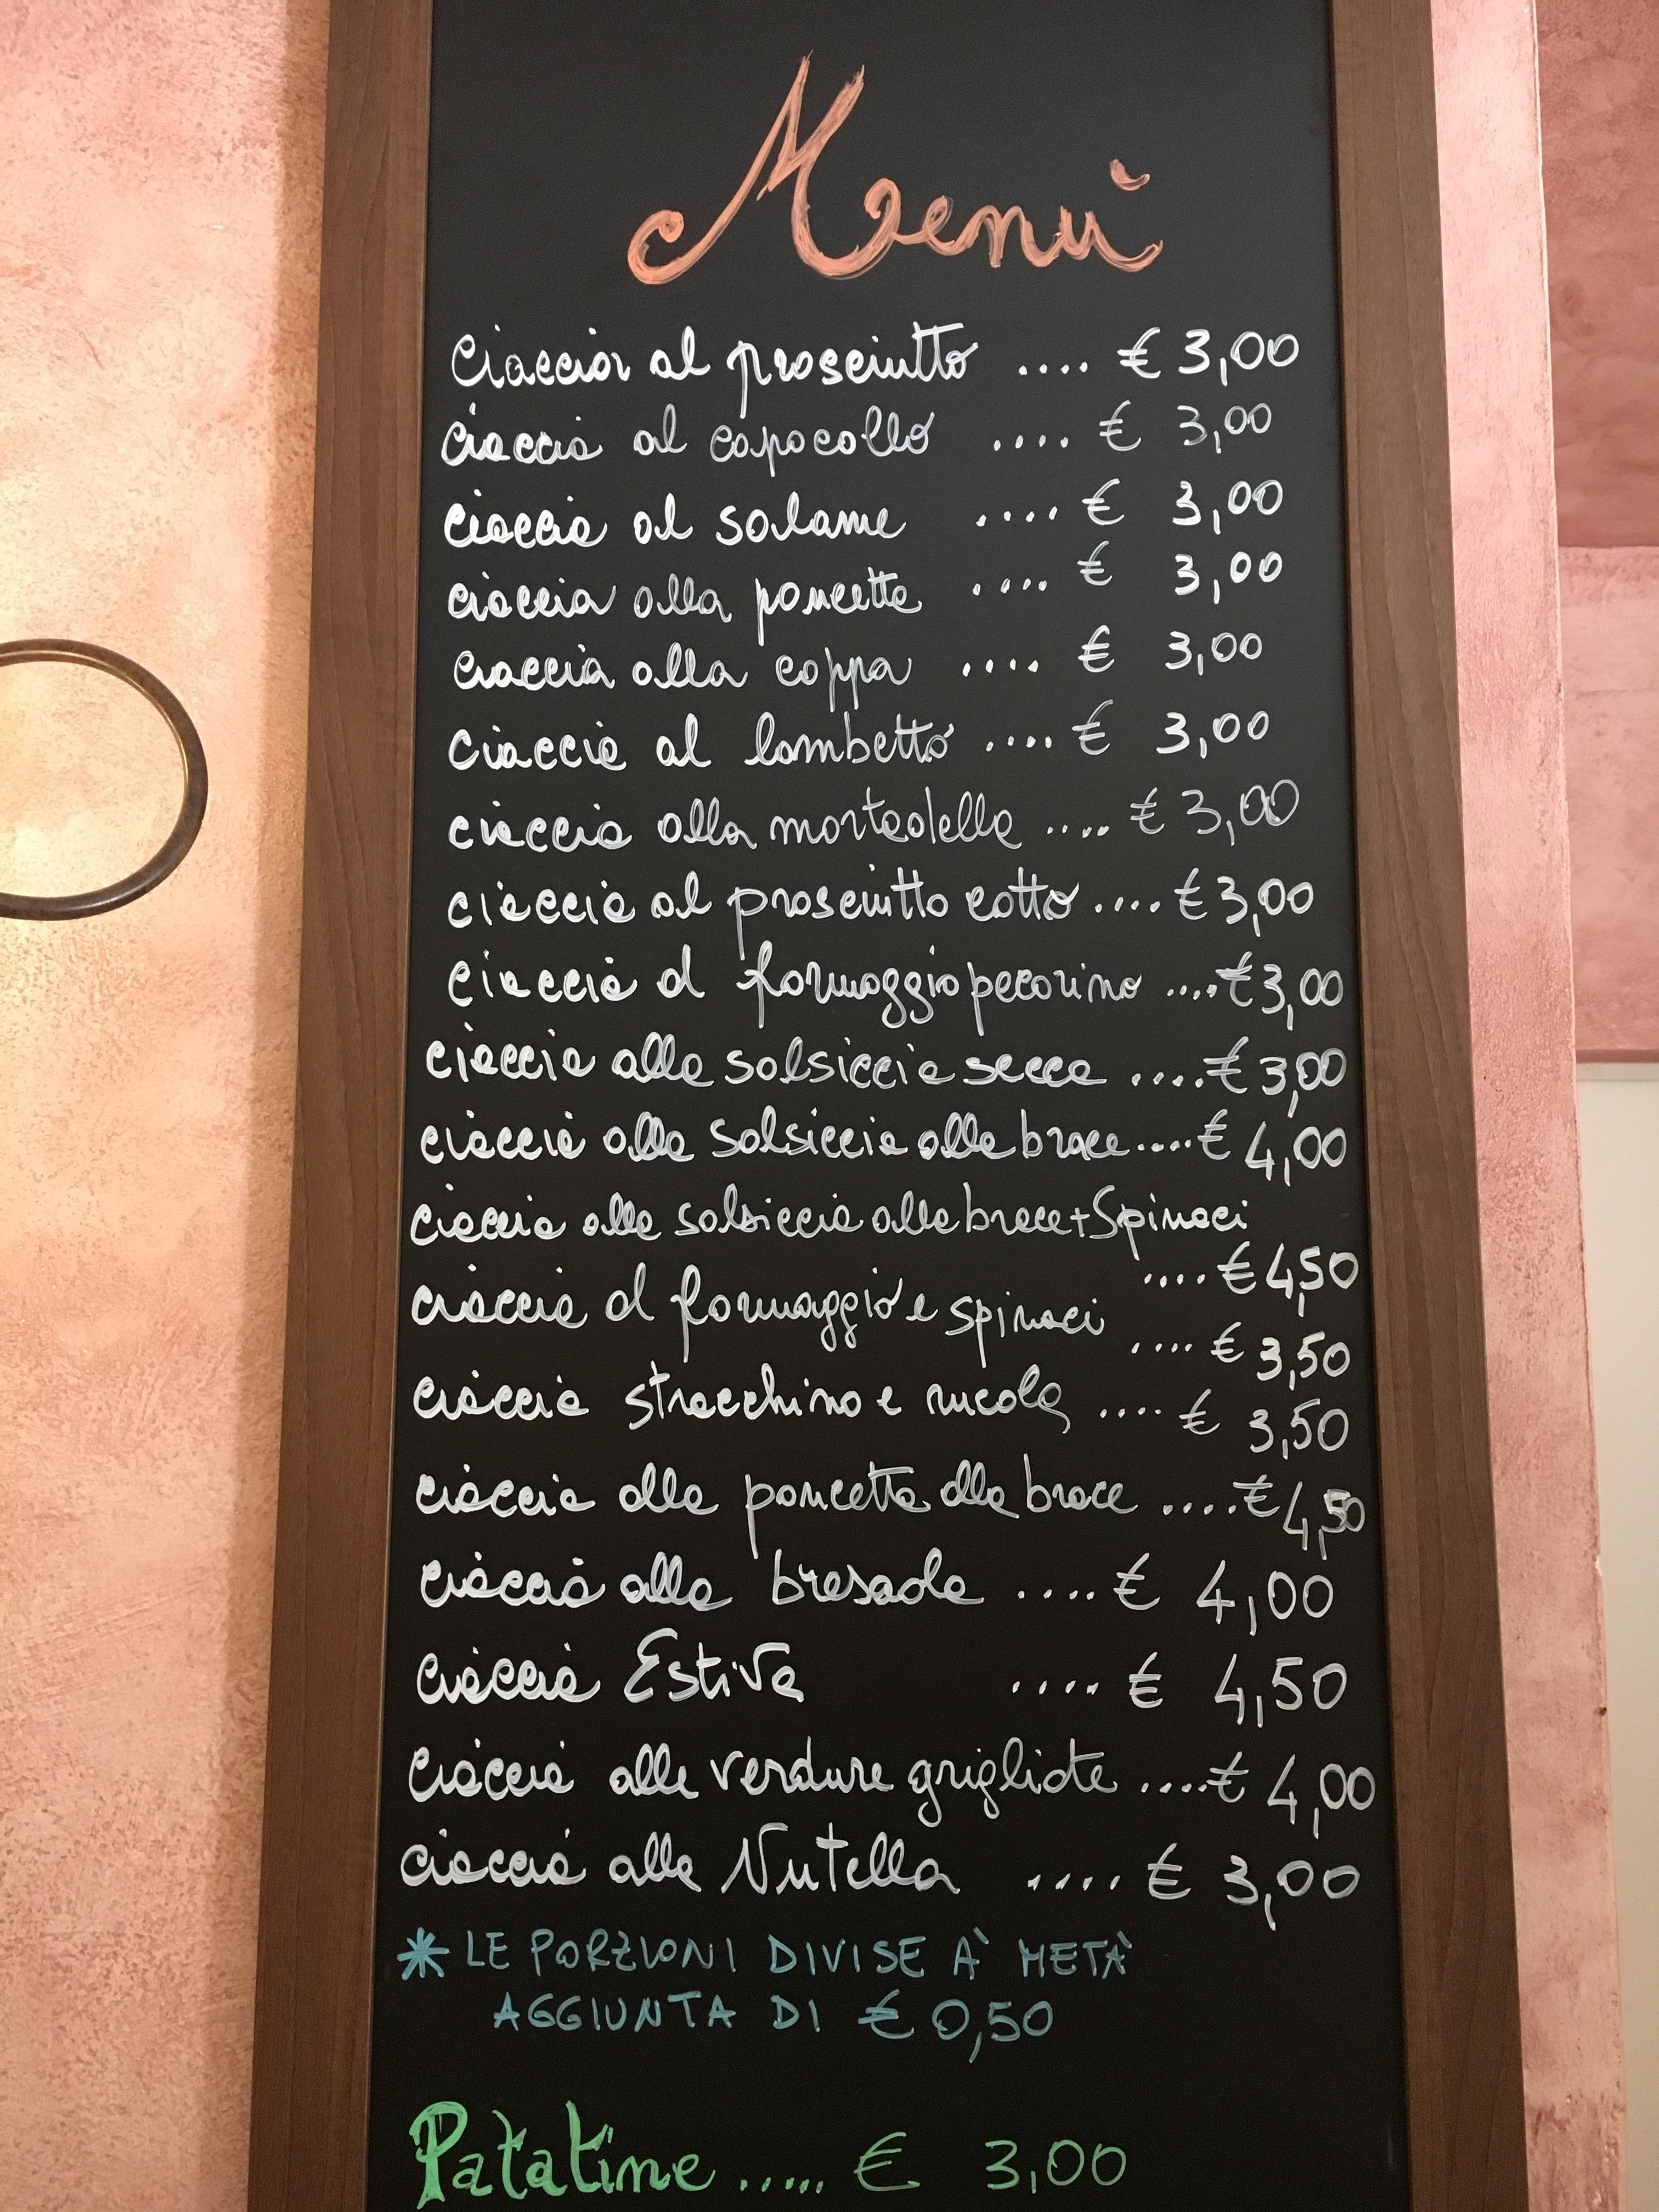 Menù
Ciaccia al prosciutto .... € 3,00
ciaccia al capocollo .... € 3,00
ciaccia al salame .... € 3,00
ciaccia alla pancetta .... € 3,00
ciaccia alla coppa .... € 3,00
ciaccia al lombetto .... € 3,00
ciaccia alla mortadella .... € 3,00
ciaccia al prosciutto cotto .... € 3,00
ciaccia al formaggio pecorino .... € 3,00
ciaccia alla salsiccia secca .... € 3,00
ciaccia alla salsiccia alla brace .... € 4,00
ciaccia alla salsiccia alla brace + Spinaci
.... € 4,50
ciaccia al formaggio e spinaci .... € 3,50
ciaccia stracchino e rucola .... € 3,50
ciaccia alla pancetta alla brace .... € 4,50
ciaccia alla bresaola .... € 4,00
ciaccia Estiva .... € 4,50
ciaccia alle verdure grigliate .... € 4,00
ciaccia alla Nutella .... € 3,00
* LE PORZIONI DIVISE A' METÀ
AGGIUNTA DI € 0,50
Patatine ..... € 3,00